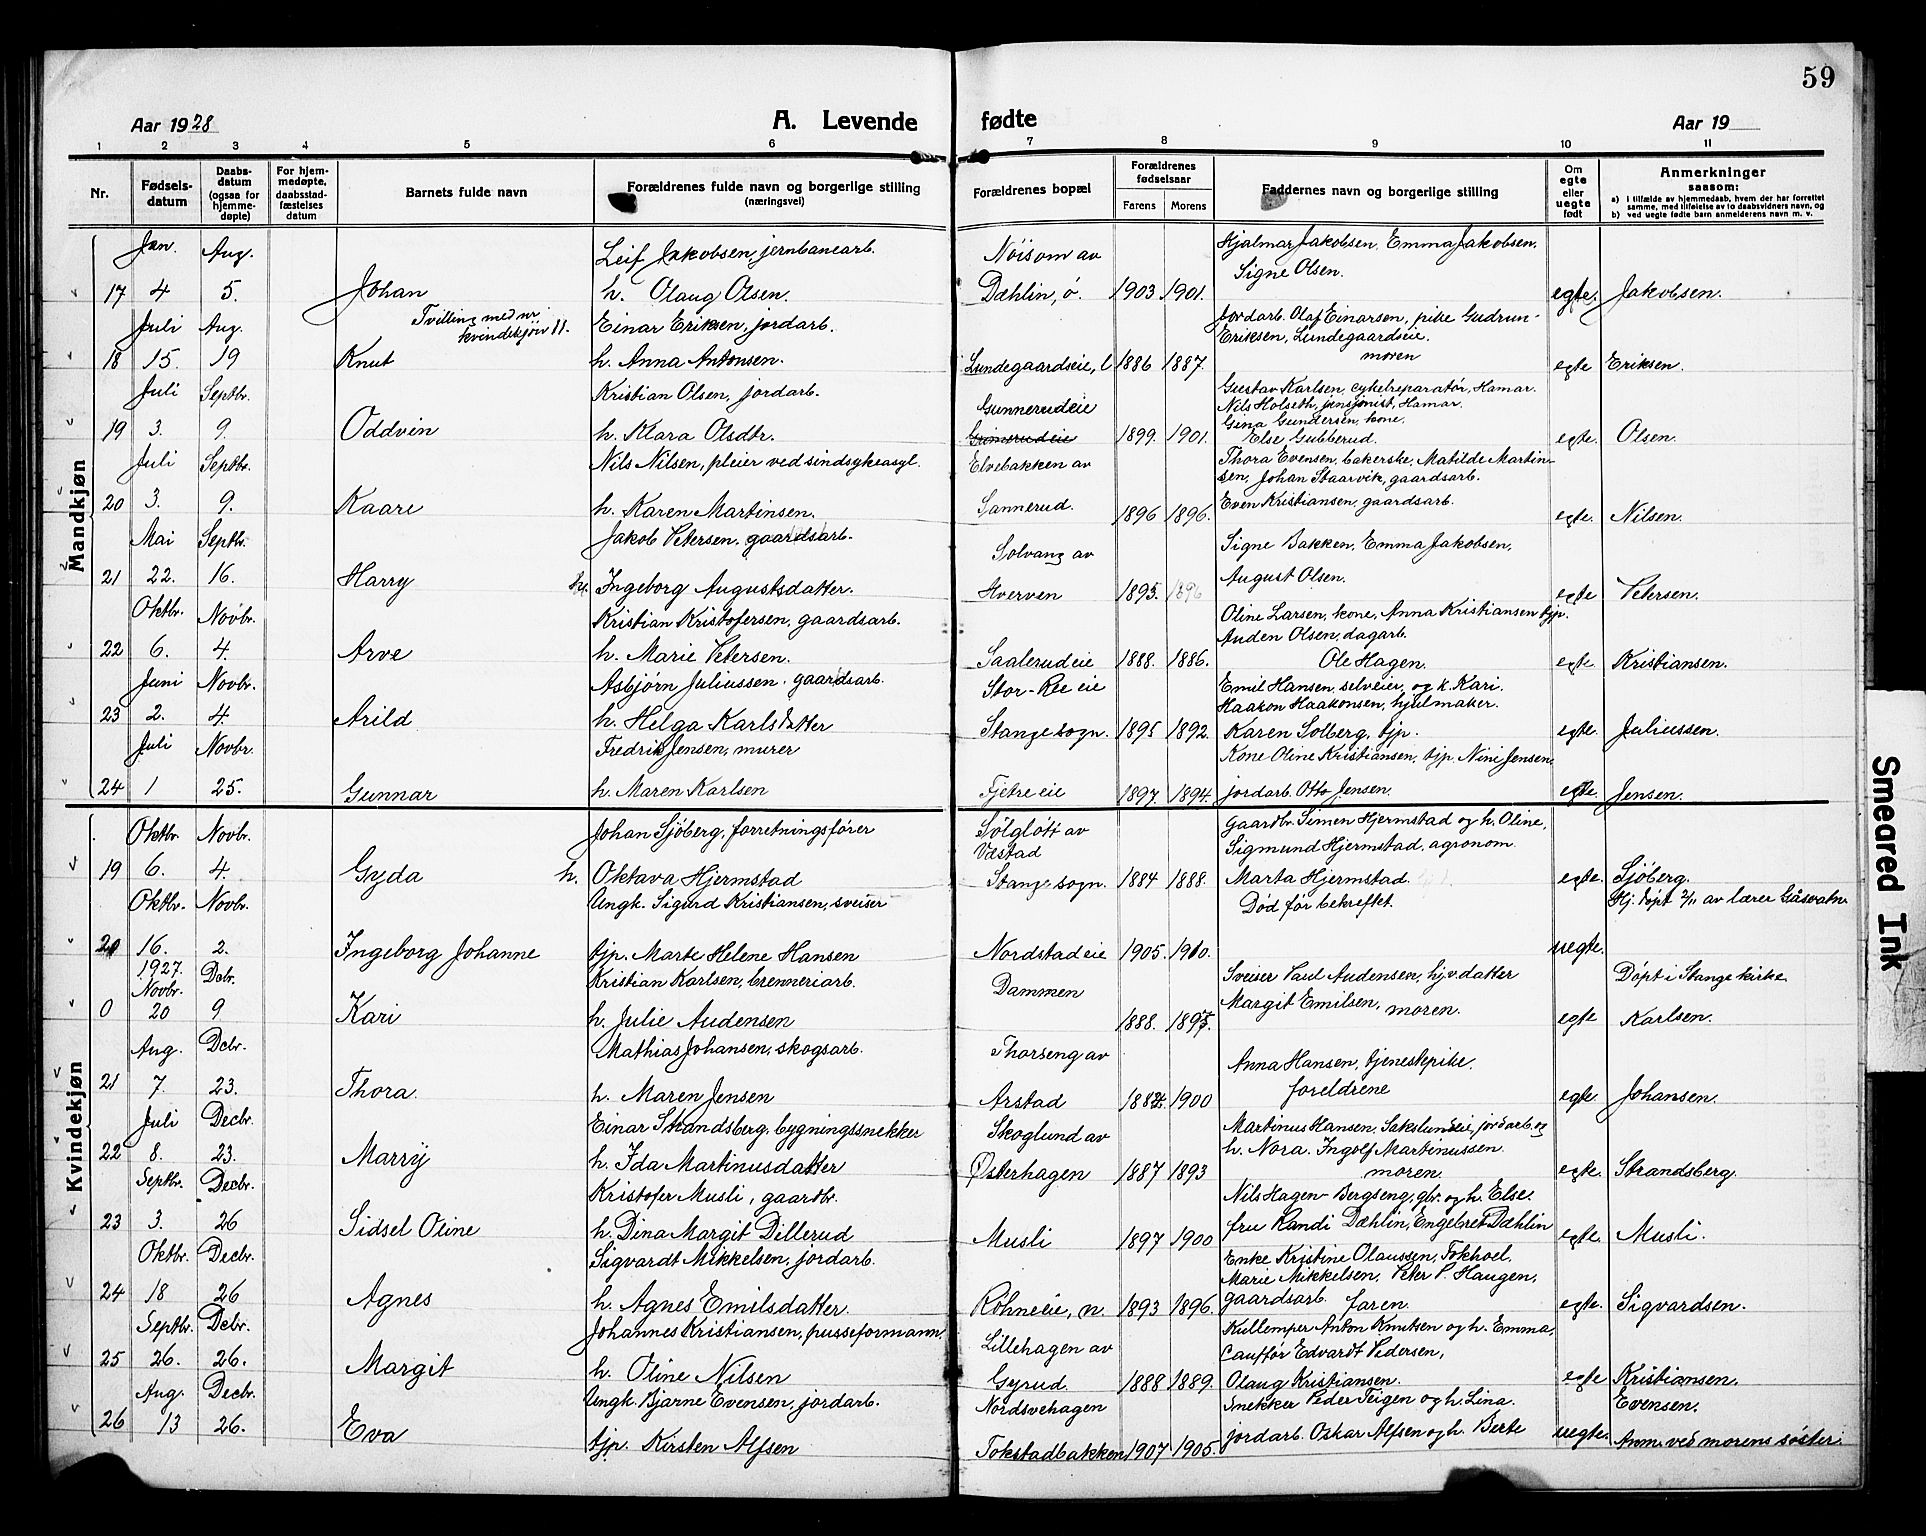 59
Aar 1928
A. Levende
fødte
Aar 19
1 2 3 4 5 6 7 8 9 10 11
Nr.
Fødsels-
datum
Daabs-
datum
(ogsaa for
hjemme-
døpte)
For hjem-
medøpte,
daabsstad-
fæstelses
datum
Barnets fulde navn
Forældrenes fulde navn og borgerlige stilling
(næringsvei)
Forældrenes bopæl
Forældrenes
fødselsaar
Farens Morens
Faddernes navn og borgerlige stilling
Om
egte
eller
uegte
født
Anmerkninger
saasom:
a) i tilfælde av hjemmedaab, hvem der har forrettet
samme, med tilføielse av to daabsvidners navn, og
b) ved uegte fødte barn anmelderens navn m. v.
Mandkjøn
Jan. Aug. Leif Jakobsen, jernbanearb. Nöisom av Hjalmar Jakobsen, Emma Jakobsen,
Signe Olsen.
17 4 5. Johan h. Olaug Olsen. Dæhlin, ö. 1903 1901. egte. Jakobsen.
Tvilling med nr.
kvindekjön 11.
Juli Aug. Einar Eriksen, jordarb. Jordarb. Olaf Einarsen, pike Gudrun
Eriksen, Lundegaardseie.
moren
18 15. 19 Knut h. Anna Antonsen. Lundegaardseie, l 1886 1887. egte Eriksen.
Juli Septbr. Kristian Olsen, jordarb. Gunnerudeie Gustav Karlsen, cykelreparatør, Hamar.
Nils Holseth, pensjonist, Hamar.
Gina Gundersen, kone.
19 3. 9. Oddvin h. Klara Olsdtr. Gunnerudeie 1899. 1901. Else Gubberud. egte. Olsen.
Juli Septbr. Nils Nilsen, pleier ved sindsykeasyl. Elvebakken av Thora Evensen, bakerske, Matilde Martin-
sen, Johan Staarvik, gaardsarb.
20 3. 9. Kaare h. Karen Martinsen. Sannerud. 1896 1896. Even Kristiansen, gaardsarb. egte. Nilsen.
Mai Septbr. Jakob Petersen, gaardsarb. Solvang av Signe Bakken, Emma Jakobsen,
21 22. 16. Harry h. Ingeborg Augustsdatter. Hverven 1893. 1896 August Olsen. egte Petersen.
Oktbr. Novbr. Kristian Kristofersen, gaardsarb. Oline Larsen, kone, Anna Kristiansen tjp.
Auden Olsen, dagarb.
22 6. 4. Arve h. Marie Petersen. Saalerudeie 1888. 1886. Ole Hagen. egte. Kristiansen.
Juni Novbr. Asbjørn Juliussen, gaardsarb. Stor-Ree eie Emil Hansen, selveier, og k. Kari.
Haakon Haakonsen, hjulmaker.
23 2. 4. Arild h. Helga Karlsdatter Stange sogn. 1895 1892. Karen Solberg, tjp. egte. Juliussen.
Juli Novbr. Fredrik Jensen, murer Kone Oline Kristiansen, tjp. Nini Jensen,
24 1 25. Gunnar h. Maren Karlsen Fjetre eie 1897. 1894. jordarb. Otto Jensen. egte. Jensen.
Kvindekjøn
Oktbr. Novbr. Johan Sjöberg, forretningsfører Sølgløtt av
Vdstad gaardbr. Simen Hjermstad og h. Oline,
Sigmund Hjermstad, agronom
19 6. 4. Gyda h. Oktava Hjermstad Stange sogn. 1884 1888. Marta Hjermstad. egte. Sjöberg.
Oktbr. Novbr. Ungk. Sigurd Kristiansen, sveiser Død før bekreftet. Hj. døpt 2/11 av lærer Gåsvatn
20 16. 2. Ingeborg Johanne tjp. Marte Helene Hansen Nordstadeie 1905. 1910. uegte.
1927
Novbr. Decbr. Kristian Karlsen, brenneriarb. Dammen Sveiser Paul Audensen, hj.v. datter Døpt i Stange kirke
0 20 9 Kari h. Julie Audensen 1888. 1895. Margit Emilsen, moren. egte Karlsen.
Aug. Dcbr. Mathias Johansen, skogsarb. Thorseng av Anna Hansen, tjenestepike.
21 7. 23. Thora. h. Maren Jensen Arstad 1882 1900 foreldrene egte Johansen.
Juli Decbr. Einar Strandsberg, bygningssnekker Skoglund av Martinus Hansen, Sakslundeie, jordarb. og
22 8. 23. Marry h. Ida Martinusdatter Østerhagen 1887 1893 h. Nora. Ingolf Martinussen
moren. egte. Strandsberg.
Septbr. Decbr. Kristofer Musli, gaardbr. Nils Hagen-Bergseng, gbr. og h. Else.
23 3. 26 Sidsel Oline h. Dina Margit Dillerud Musli 1897 1900 fru Randi Dæhlin, Engebret Dæhlin egte. Musli.
Oktbr. Decbr. Sigvardt Mikkelsen, jordarb. Enke Kristine Olaussen, Tokhoel.
Marie Mikkelsen, Peter P. Haugen,
24 18 26 Agnes h. Agnes Emilsdatter. Rohneeie, n. 1893 1896. gaardsarb. faren. egte. Sigvardsen.
Septbr. Dcbr. Johannes Kristiansen, pusseformann. Lillehagen av Kullemper Anton Knutsen og h. Emma,
Cauffør Edvardt Pedersen,
25 26. 26. Margit h. Oline Nilsen Gyrud. 1888 1889. Olaug Kristiansen. egte Kristiansen.
Aug. Decbr. Ungk. Bjarne Evensen, jordarb. Nordsvehagen Snekker Peder Teigen og h. Lina. Evensen.
26 13 26. Eva tjp. Kirsten Alfsen Tokstadbakken 1907 1905. jordarb. Oskar Alfsen og h. Berte uegte. Anm. ved morens söster.
Smeared Ink